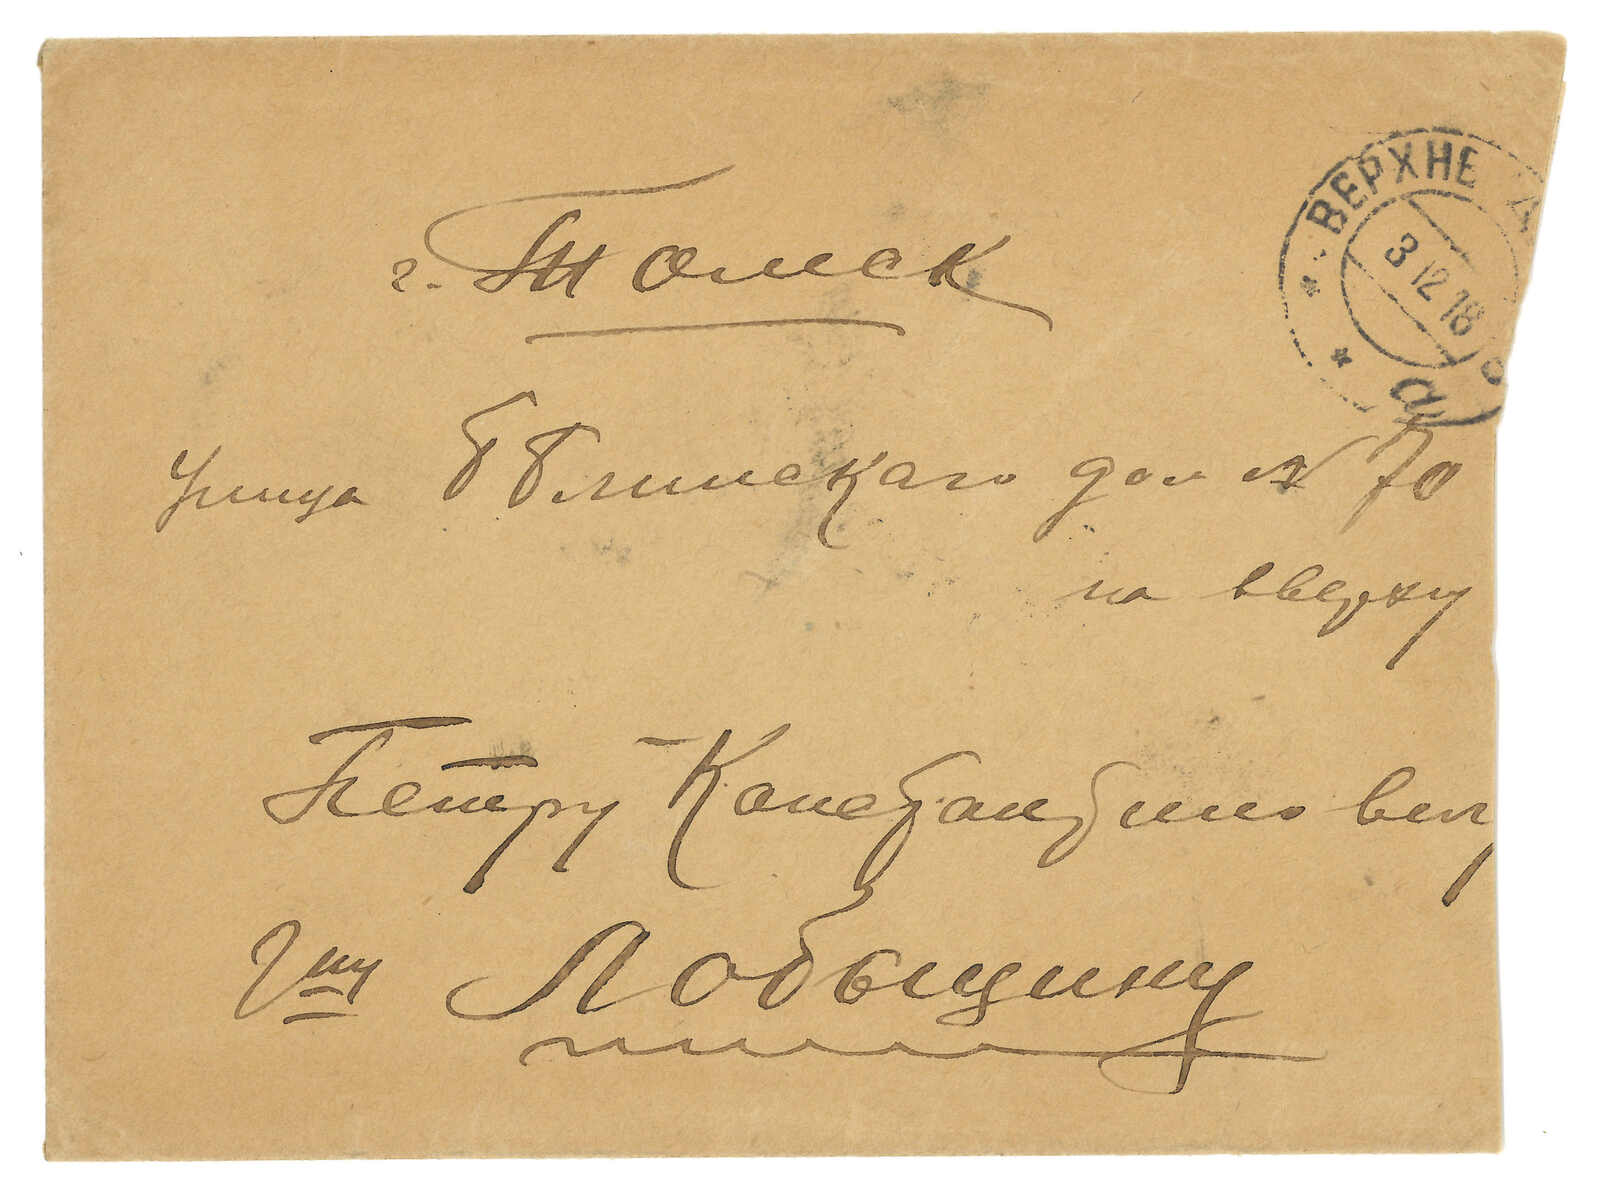 ВЕРХНЕ
3 12 18
а
г. Томск
улица Бѣлинскаго дом № 70
на вверху
Петру Константинович
Гну Лобыцину